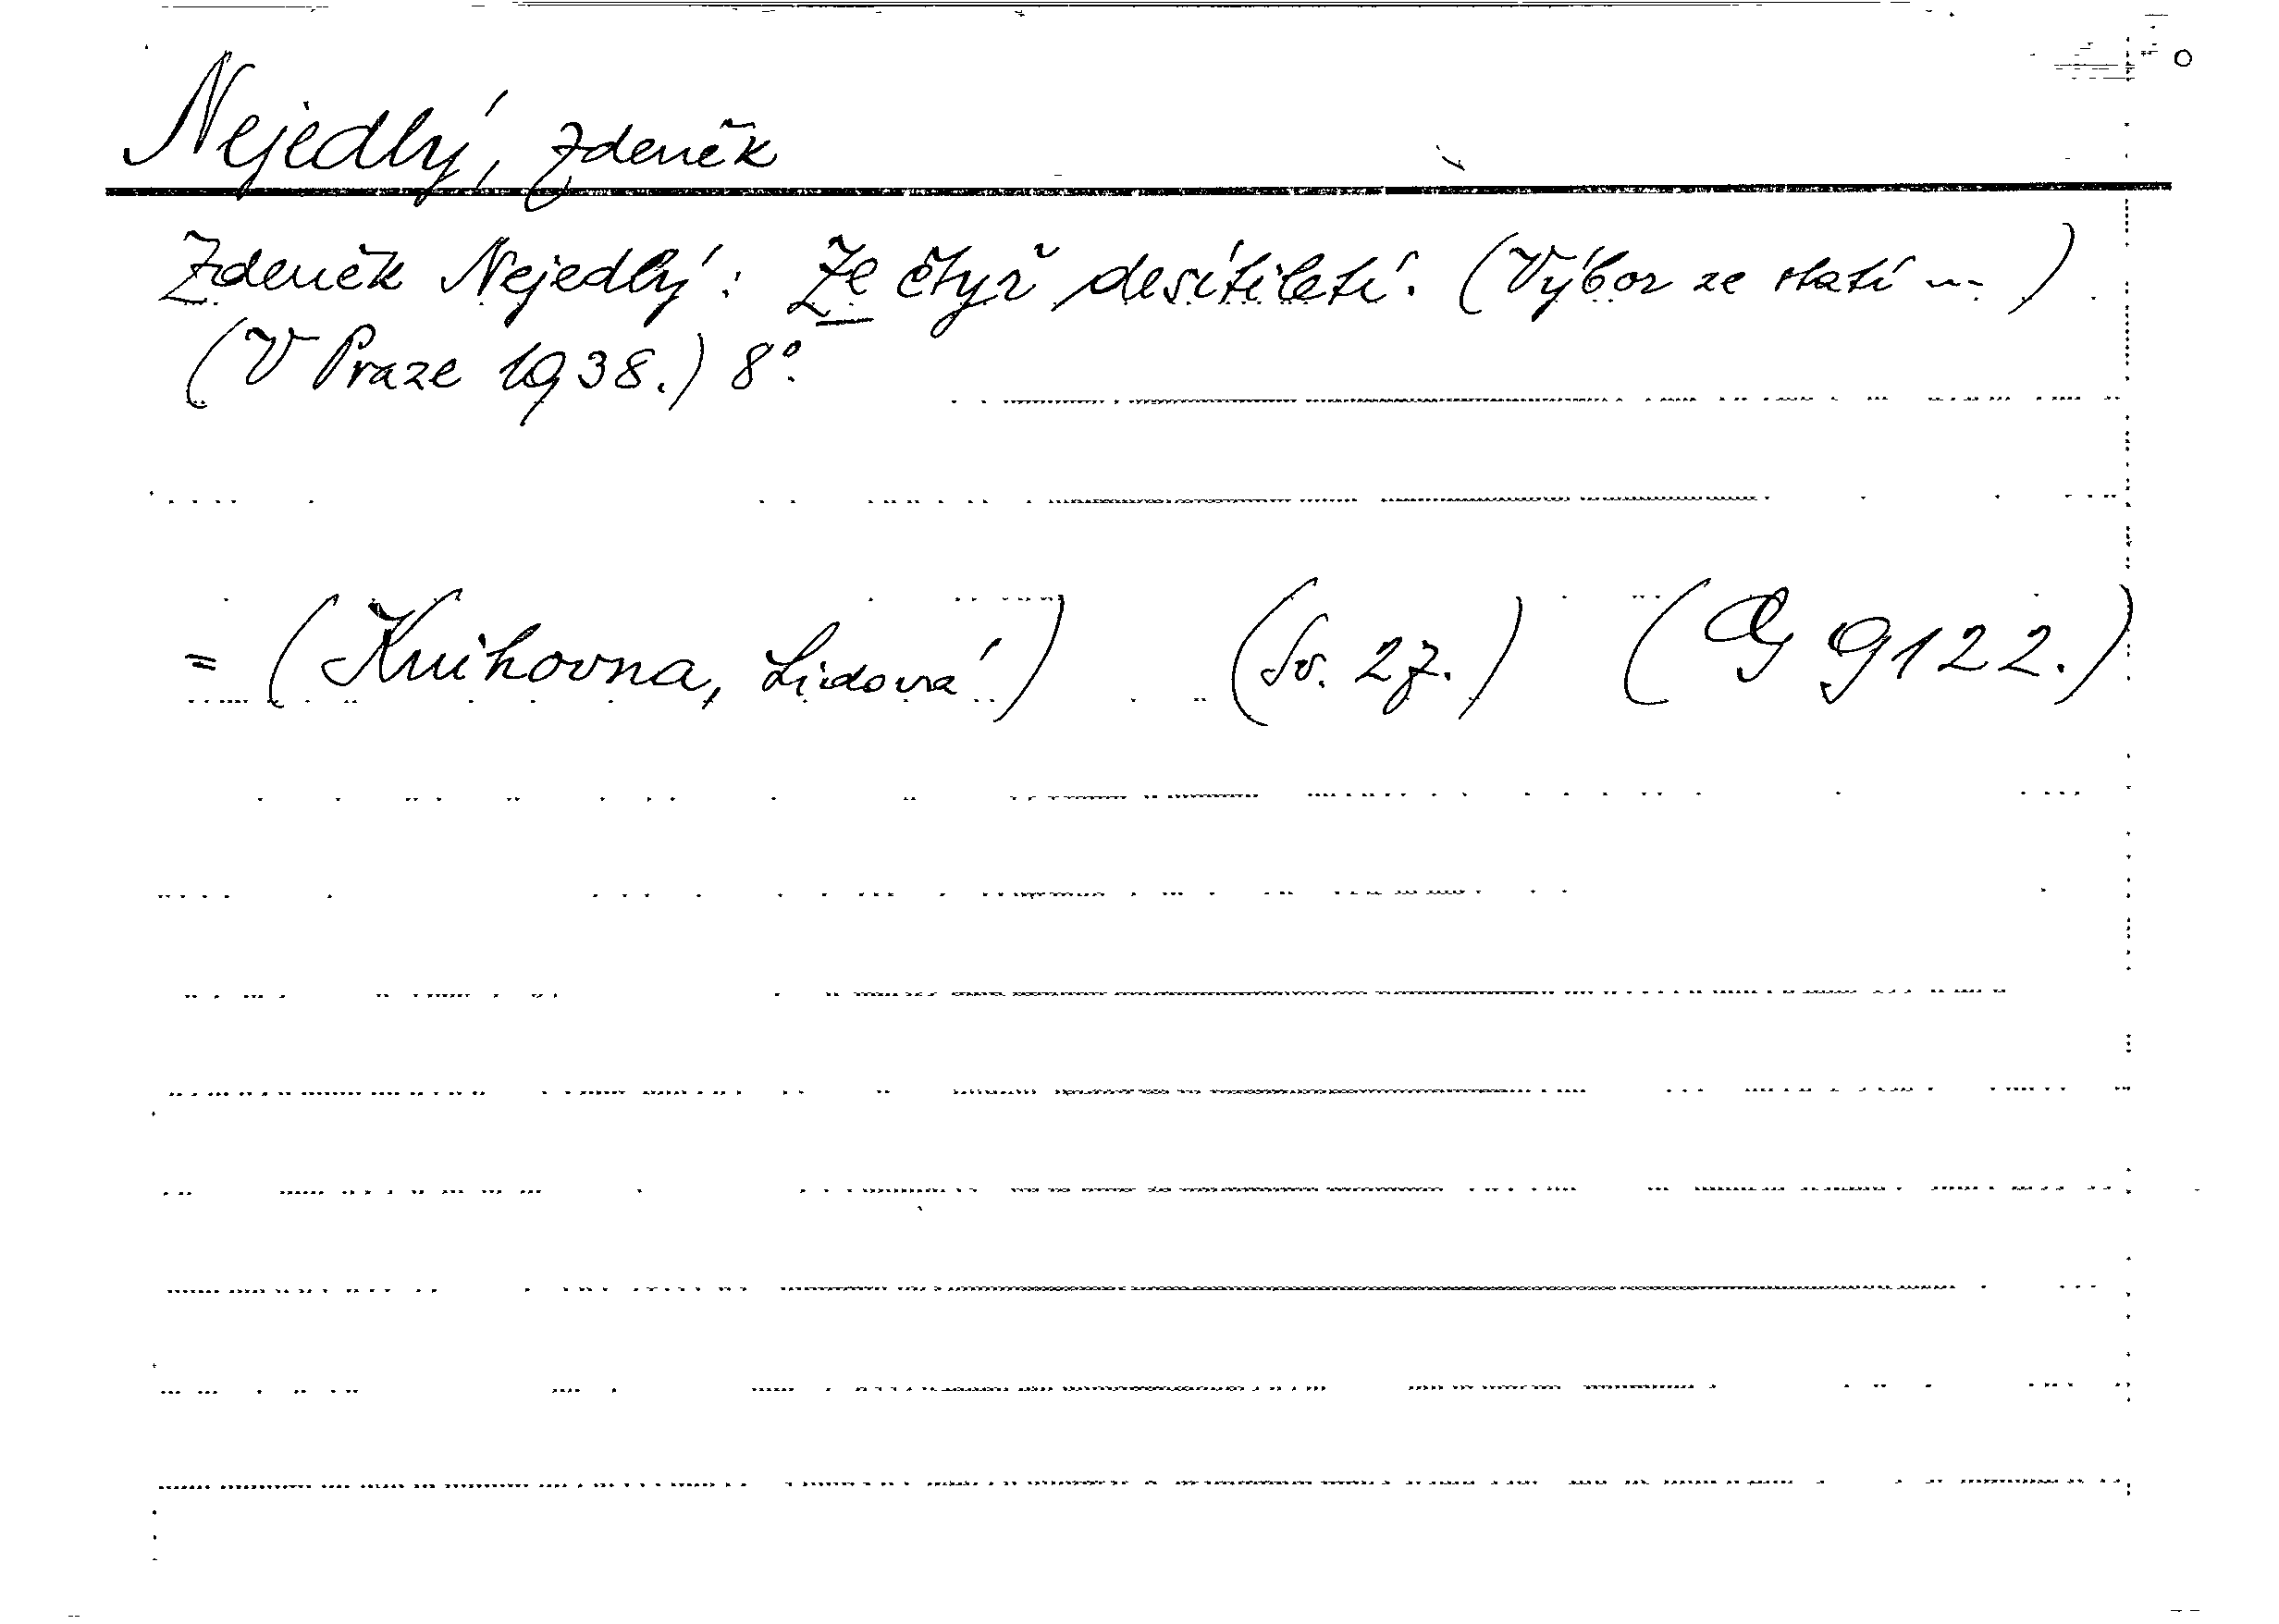 Nejedlý, Zdeněk
Zdeněk Nejedlý: Ze čtyř desítiletí. (Výbor ze statí --- )
(V Praze 1938.) 8°.
= (Knihovna, Lidová) (Sv. 27.) (G 9122.)